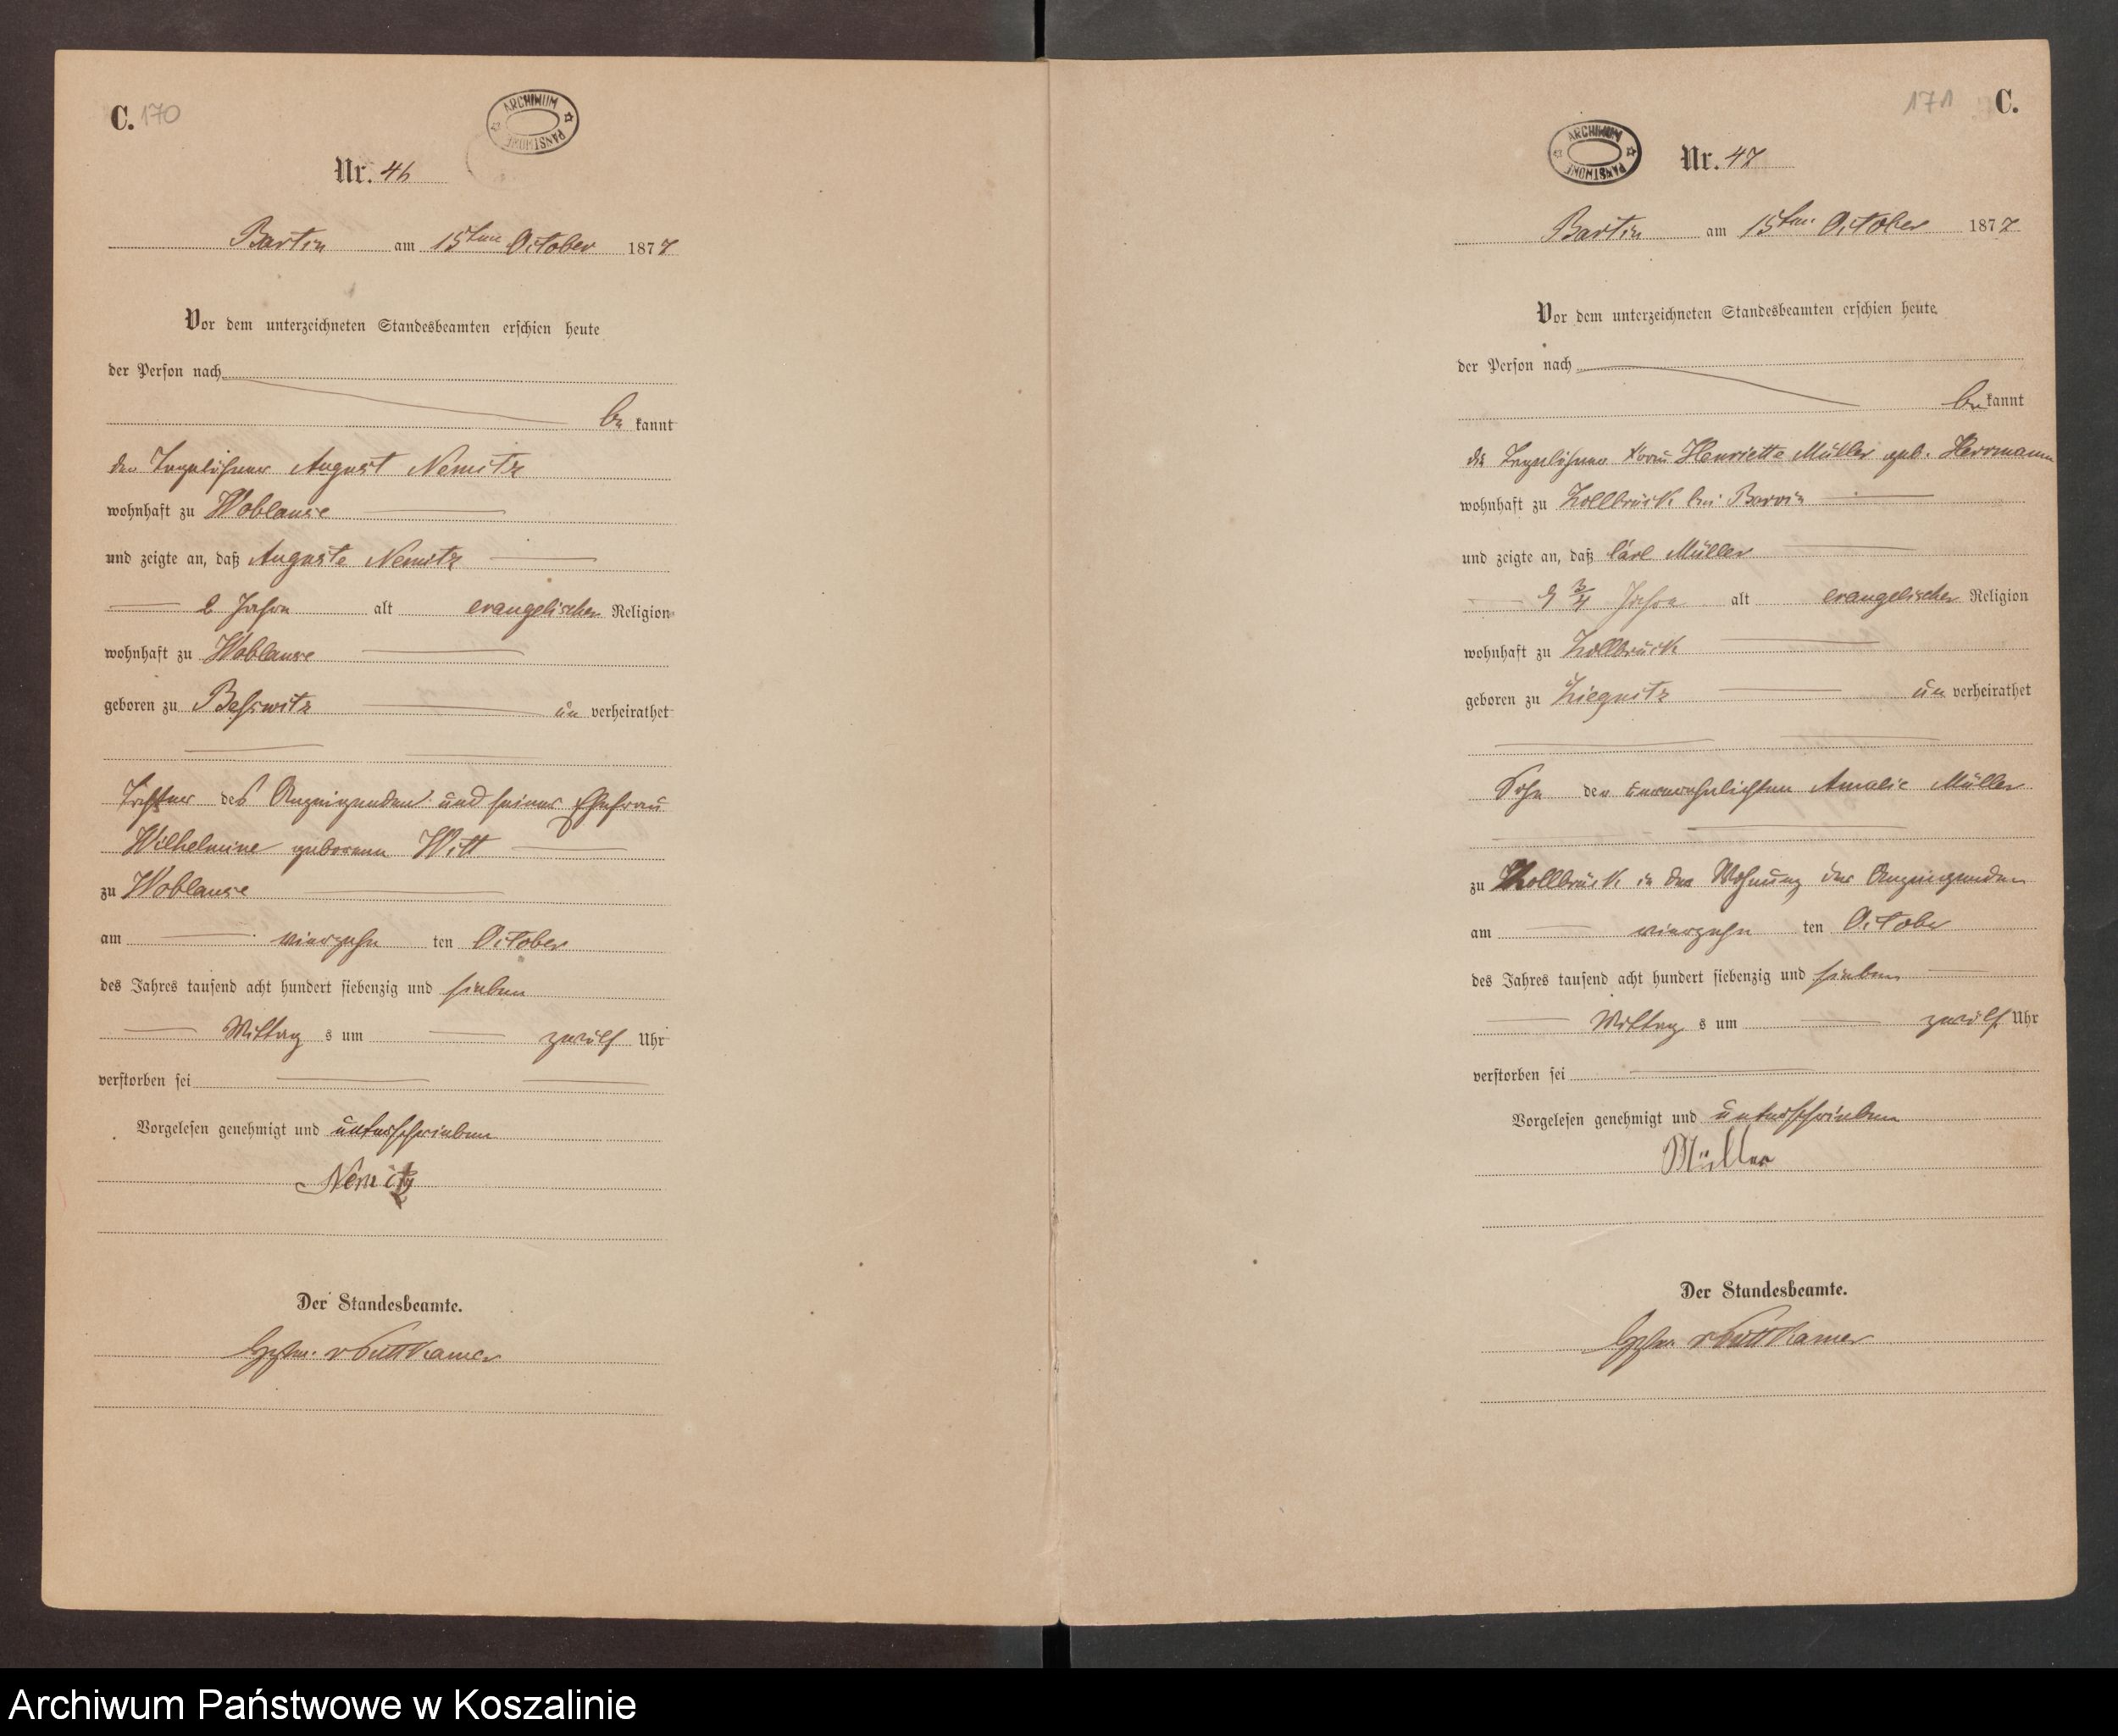 C. 170
ARCHIWUM PAŃSTWOWE
Nr. 46
Bartin am 15ten October 1877
Vor dem unterzeichneten Standesbeamten erschien heute
der Person nach
be kannt
der Tagelöhner August Nemitz
wohnhaft zu Woblanse
und zeigte an, daß Auguste Nemitz
2 Jahre alt evangelischer Religion
wohnhaft zu Woblanse
geboren zu Beßwitz un verheirathet
Tochter des Anzeigenden und seiner Ehefrau
Wilhelmine geborenen Witt
zu Woblanse
am vierzehn ten October
des Jahres tausend acht hundert siebenzig und sieben
Mittag s um zwölf Uhr
verstorben sei
Vorgelesen genehmigt und unterschrieben
Nemitz
Der Standesbeamte.
v Puttkamer
171 C.
ARCHIWUM PAŃSTWOWE
Nr. 47
Bartin am 15ten October 1877
Vor dem unterzeichneten Standesbeamten erschien heute
der Person nach
be kannt
die Tagelöhner Frau Henriette Müller geb. Herrmann
wohnhaft zu Zollbrück bei Barvin
und zeigte an, daß Carl Müller
3/4 Jahre alt evangelischer Religion
wohnhaft zu Zollbrück
geboren zu Ziegnitz un verheirathet
Sohn der unverehelichten Amalie Müller
zu Zollbrück in der Wohnung der Anzeigenden
am vierzehn ten October
des Jahres tausend acht hundert siebenzig und sieben
Mittag s um zwölf Uhr
verstorben sei
Vorgelesen genehmigt und unterschrieben
Müller
Der Standesbeamte.
v Puttkamer
Archiwum Państwowe w Koszalinie